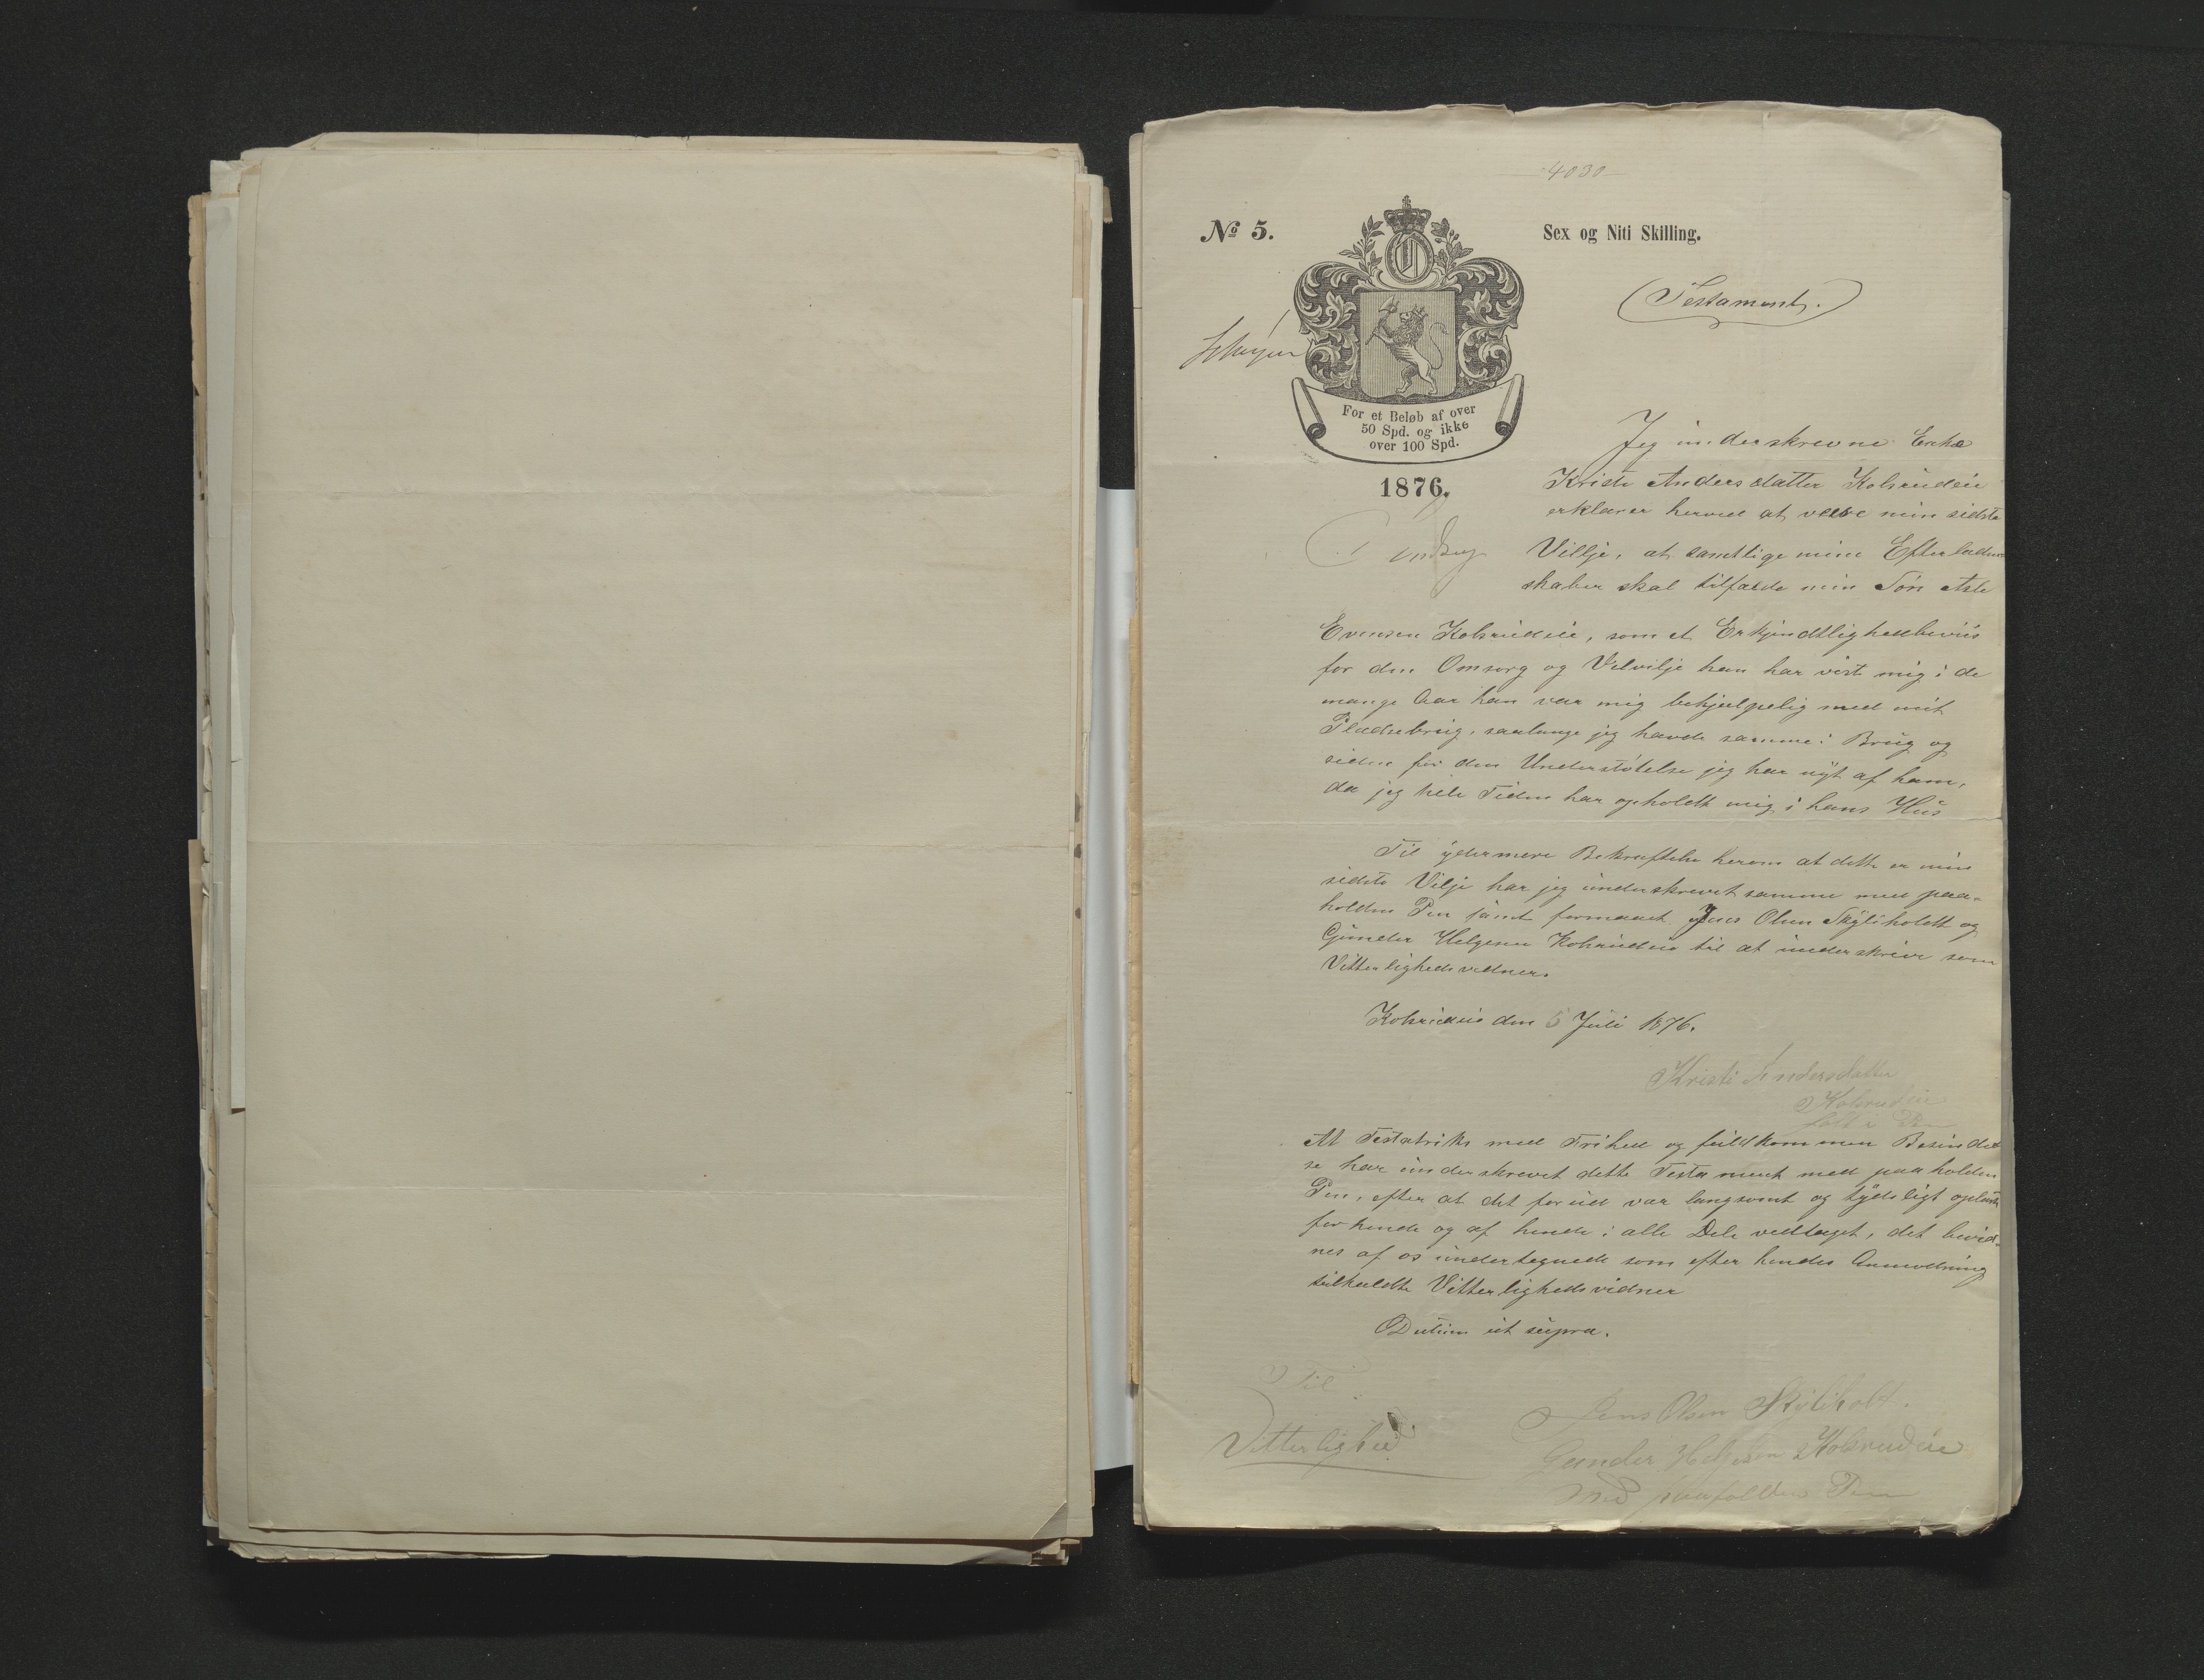 4030
No 5.
Sex og Niti Skilling.
(Testament.)
For et Beløb af over
50 Spd. og ikke
over 100 Spd.
1876.
Jeg underskrevne Enke
Kristi Andersdatter Kolsrudeie
erklærer herved at være min sidste
Villje, at samtlige mine Efterladen
skaber skal tilfalde min Søn Asle
Evensen Kolsrudeie, som et Erkjendtlighedbeviis
for den Omsorg og Velvilje han har vist mig i de
mange Aar han var mig behjelpelig med mit
Pladsebrug, saalænge jeg havde samme i Brug og
siden for den Understøtelse jeg har nÿt af ham,
da jeg hele Tiden har opholdt mig i hans Hus
Til ÿdermere Bekræftelse herom at dette er min
sidste Vilje har jeg underskrevet samme med paa-
holden Pen samt formaaet Jens Olsen Skÿliholdt og
Gunder Helgesen Kolsrudeie til at underskrive som
Vitterlighedsvidner.
Kolsrudeie den 5 Juli 1876.
Kristi Andersdatter
Kolsrudeie
Pen
At Testatriks med Frihed og fuldkommen Besindel
se har underskrevet dette Testament med paaholden
Pen, efter at det forud var langsomt og tÿdeligt oplæst
for hende og af hende i alle Dele vedtaget, det bevid-
nes af os undertegnede som efter hendes Anmodning
tilkaldte Vitterlighedsvidner
Datum ut supra.
Til
Vitterlighed
Jens Olsen Skÿliholt.
Gunder Helgesen Kolsrudeie
med paaholden Pen